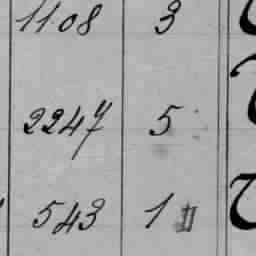 1108 3
2247 5
543 1